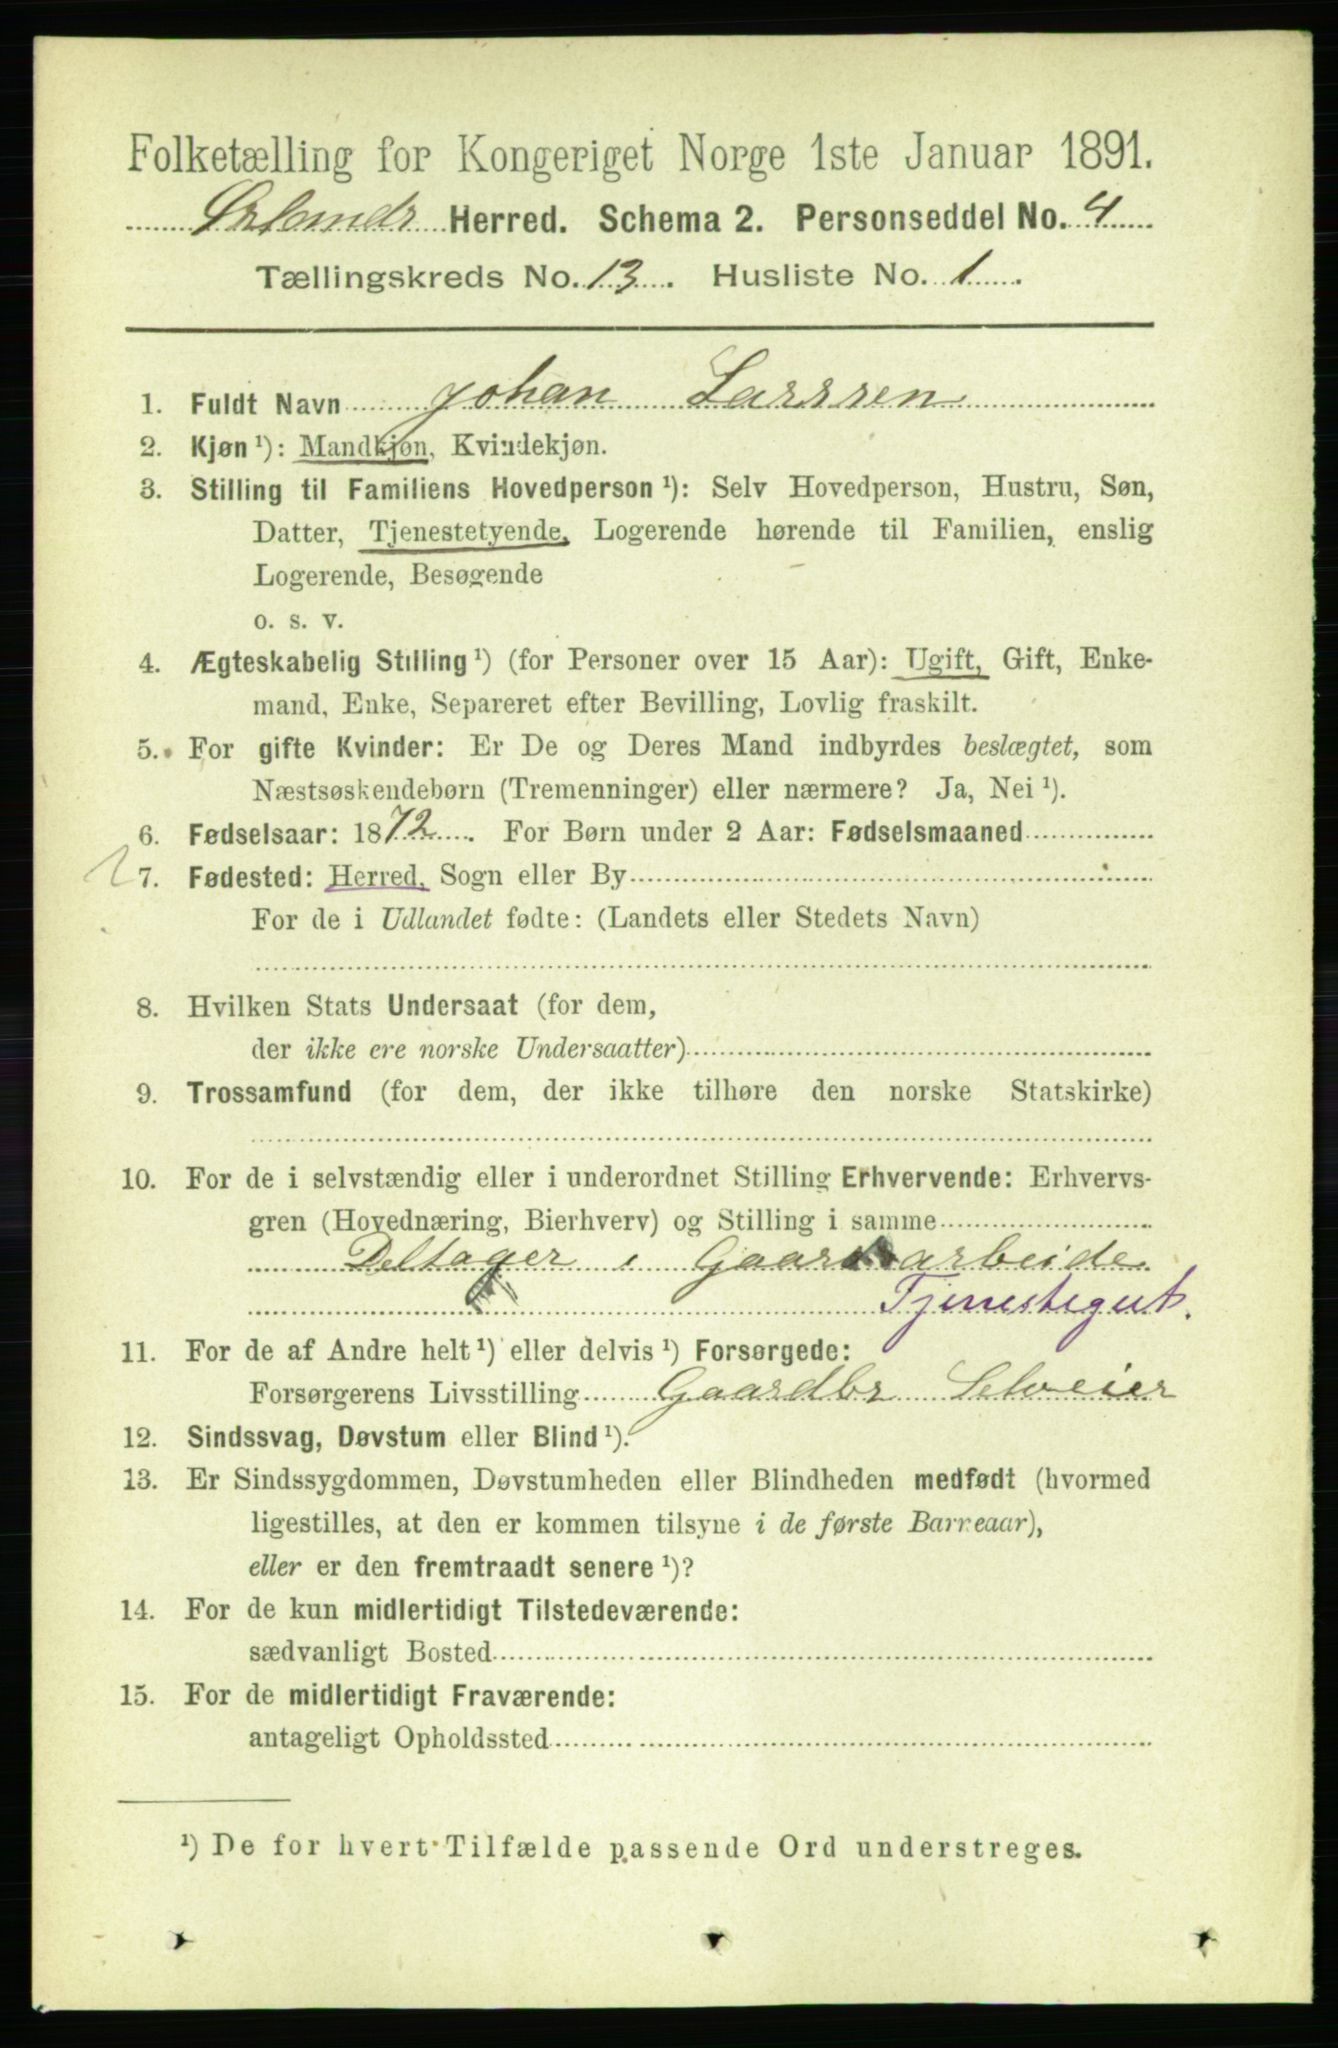 Folketælling for Kongeriget Norge 1ste Januar 1891.
Ørlands Herred. Schema 2. Personseddel No. 4
Tællingskreds No. 13. Husliste No. 1
1. Fuldt Navn Johan Larssen
2. Kjøn ¹): Mandkjøn, Kvindekjøn.
3. Stilling til Familiens Hovedperson ¹): Selv Hovedperson, Hustru, Søn,
Datter, Tjenestetyende, Logerende hørende til Familien, enslig
Logerende, Besøgende
o. s. v.
4. Ægteskabelig Stilling ¹) (for Personer over 15 Aar): Ugift, Gift, Enke-
mand, Enke, Separeret efter Bevilling, Lovlig fraskilt.
5. For gifte Kvinder: Er De og Deres Mand indbyrdes beslægtet, som
Næstsøskendebørn (Tremenninger) eller nærmere? Ja, Nei ¹).
6. Fødselsaar: 1872. For Børn under 2 Aar: Fødselsmaaned
7. Fødested: Herred, Sogn eller By
For de i Udlandet fødte: (Landets eller Stedets Navn)
8. Hvilken Stats Undersaat (for dem,
der ikke ere norske Undersaatter)
9. Trossamfund (for dem, der ikke tilhøre den norske Statskirke)
10. For de i selvstændig eller i underordnet Stilling Erhvervende: Erhvervs-
gren (Hovednæring, Bierhverv) og Stilling i samme
Deltager i Gaardsarbeide
Tjenestegut.
11. For de af Andre helt ¹) eller delvis ¹) Forsørgede:
Forsørgerens Livsstilling Gaardbr Selveier
12. Sindssvag, Døvstum eller Blind ¹).
13. Er Sindssygdommen, Døvstumheden eller Blindheden medfødt (hvormed
ligestilles, at den er kommen tilsyne i de første Barneaar),
eller er den fremtraadt senere ¹)?
14. For de kun midlertidigt Tilstedeværende:
sædvanligt Bosted
15. For de midlertidigt Fraværende:
antageligt Opholdssted
¹) De for hvert Tilfælde passende Ord understreges.